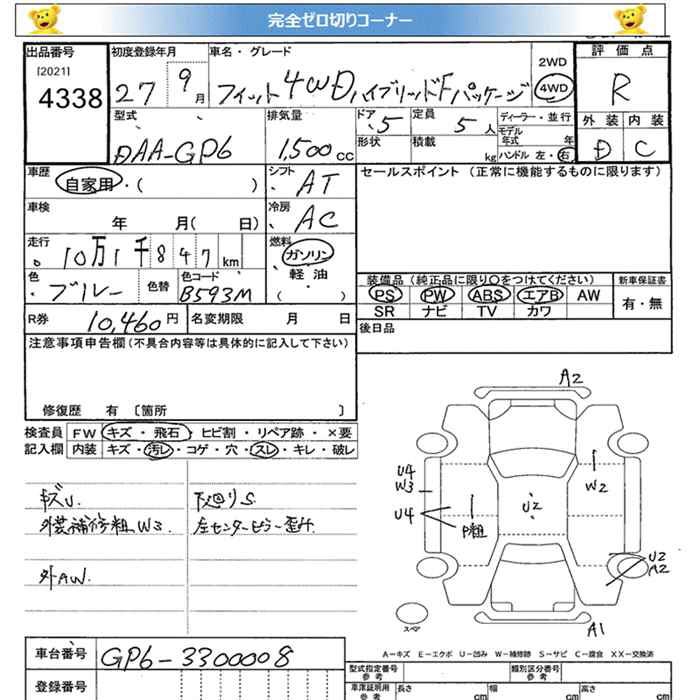 完全ゼロ切りコーナー
出品番号 初度登録年月 車名・グレード 評価点
[2021] 4338 27 9月 フィット4WDハイブリッドFパッケージ 2WD 4WD R
型式 排気量 ドア 定員 ディーラー・並行 外装 内装
DAA-GP6 1,500cc 5 5人 モデル年式 年 D C
形状 積載 kg ハンドル 左・右
車歴 シフト セールスポイント (正常に機能するものに限ります)
自家用・( ) AT
車検 冷房
年 月( 日) AC
走行 燃料
10万1千847km ガソリン・軽油・( )
色 色替 色コード 装備品 (純正品に限り○をつけてください) 新車保証書
ブルー B593M PS PW ABS エアB AW 有・無
SR ナビ TV カワ
R券 10,460円 名変期限 月 日 後日品
注意事項申告欄(不具合内容等は具体的に記入して下さい)
修復歴 有 〔箇所 〕
検査員 FW キズ・飛石・ヒビ割・リペア跡・×要
記入欄 内装 キズ・汚レ・コゲ・穴・スレ・キレ・破レ
キズU. 下廻りS
外装補修粗W3. 左センターピラー歪ミ
外AW.
A2
U4
W3
W2
U4
P粗
U2
U2
A2
スペア
A1
A-キズ E-エクボ U-凹み W-補修跡 S-サビ C-腐食 XX-交換済
車台番号 GP6-3300008
型式指定番号 参考 類別区分番号 参考
登録番号 車庫証明用 参考 長さ cm 幅 cm 高さ cm